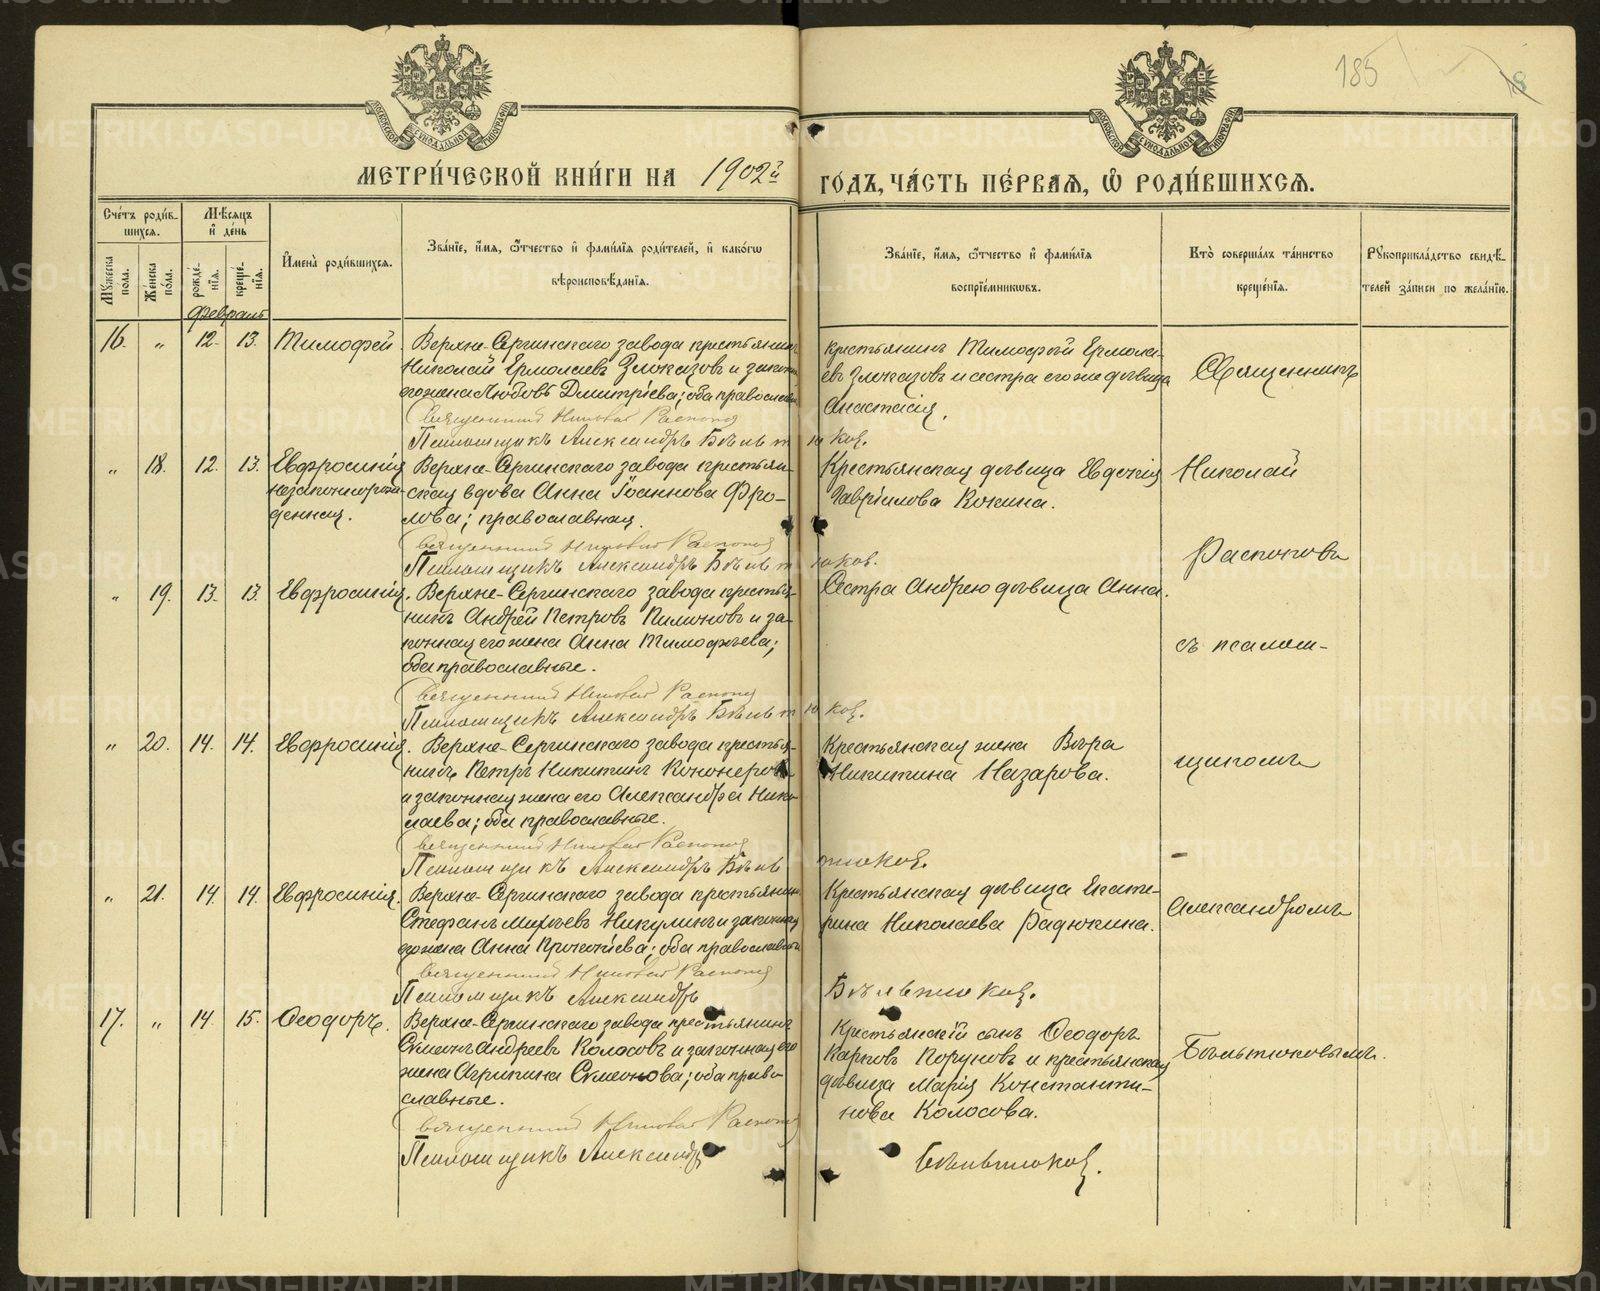 185
МЕТРИ́ЧЕСКОЙ КНИ́ГИ НА 1902й ГО́ДЪ, ЧА́СТЬ ПЕ́РВАЯ, Ѽ РОДИ́ВШИХСЯ.
Сче́тъ роди́в-
шихся.
Мѣ́сяцъ
и́ день
Му́жеска
пола.
Же́нска
по́ла.
рожде́-
нія.
креще́-
нія.
И́мена̀ роди́вшихся.
Зва́ніе, и́мя, ѻ́тчество и́ фами́лія роди́телей, и́ како́гѡ
вѣроисповѣ́данія.
Зва́ніе, и́мя, ѻ́тчество и́ фами́лія
воспріе́мниковъ.
Кто̀ соверша́лъ та́инство
креще́нія.
Рукоприкла́дство свидѣ́-
телей за́писи по жела́нію.
Февраль
16. „ 12. 13. Тимофей.
Верхне-Сергинскаго завода крестьянинъ
Николай Ермолаевъ Злоказовъ и законная
его жена Любовь Дмитріева; оба православные
Священникъ Николай Распопов
Псаломщикъ Александръ Бѣльтюков.
крестьянинъ Тимофей Ермола-
евъ Злоказовъ и сестра его же дѣвица
Анастасія.
Священникъ
„ 18. 12. 13. Евфросинія
незаконнорож-
денная.
Верхне-Сергинскаго завода крестьян-
ская вдова Анна Іоаннова Фро-
лова; православная.
Священникъ Николай Распопов
Псаломщикъ Александръ Бѣльтюков.
Крестьянская дѣвица Евдокія
Гавріилова Кокина.
Николай
Распоповъ
„ 19. 13. 13. Евфросинія.
Верхне-Сергинскаго завода крестья-
нинъ Андрей Петровъ Пимоновъ и за-
конная его жена Анна Тимофеева;
оба православные.
Священникъ Николай Распопов
Псаломщикъ Александръ Бѣльтюков.
Сестра Андрею дѣвица Анна.
съ псалом-
„ 20. 14. 14. Евфросинія.
Верхне-Сергинскаго завода крестья-
нинъ Петръ Никитинъ Кононеровъ
и законная жена его Александра Нико-
лаева; оба православные.
Священникъ Николай Распопов
Псаломщикъ Александръ Бѣльтюков.
Крестьянская жена Вѣра
Никитина Назарова.
щикомъ
„ 21. 14. 14. Евфросинія.
Верхне-Сергинскаго завода крестьянинъ
Стефанъ Никулинъ и законная
его жена Анна Прокопіева; оба православные
Священникъ Николай Распопов
Псаломщикъ Александръ Бѣльтюков.
Крестьянская дѣвица Екате-
рина Николаева Радюкина.
Александромъ
17. „ 14. 15. Ѳеодоръ.
Верхне-Сергинскаго завода крестьянинъ
Симеонъ Андреевъ Колосовъ и законная его
жена Агрипина Симеонова; оба право-
славные.
Священникъ Николай Распопов
Псаломщикъ Александръ Бѣльтюков.
Крестьянскій сынъ Ѳеодоръ
Карповъ Порунов и крестьянская
дѣвица Марія Константи-
нова Колосова.
Бѣльтюковымъ.
METRIKI.GASO-URAL.RU